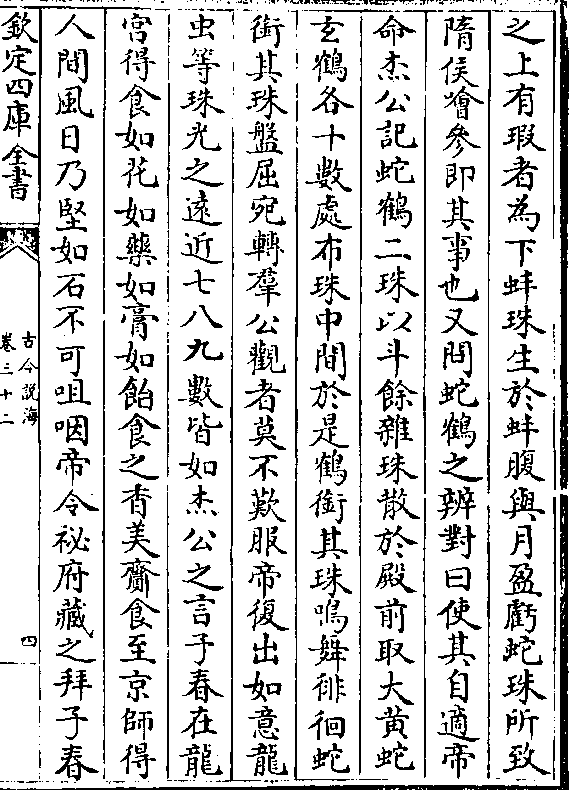 之上有瑕者為下蚌珠生於蚌腹與月盈虧蛇珠所致
隋侯噲參即其事也又問蛇鶴之辨對曰使其自適帝
命杰公記蛇鶴二珠以斗餘雜珠散於殿前取大黄蛇
玄鶴各十數處布珠中間於是鶴銜其珠鳴舞徘徊蛇
銜其珠盤屈宛轉羣公觀者莫不歎服帝復出如意龍
虫等珠光之逺近七八九數皆如杰公之言子春在龍
宫得食如花如藥如膏如飴食之香美齎食至京師得
人間風日乃堅如石不可咀咽帝令祕府藏之拜子春
欽定四庫全書
古今説海
卷三十二
四